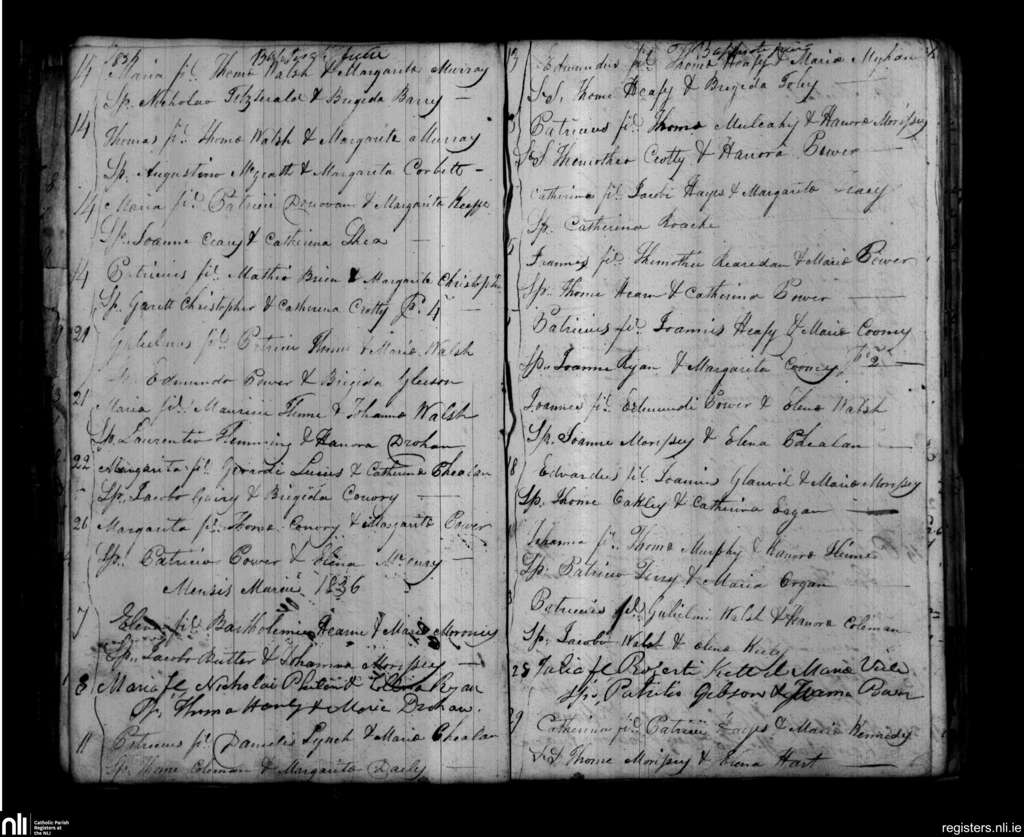 1836 Baptisms June
14 Maria fil. Thome Walsh & Margarita Murray
Sp. Nicholao Fitzferald & Brigeda Barry
14 Thomas fil. Thome Walsh & Margarita Murray
Sp. Augustino Mcgrath & Margarita Corbett
14 Maria fil. Patricii Donovan & Margarita Keeffe
Sp. Joanne Ceary & Catherina Shea
14 Patricius fil. Mathie Brien & Margarita Christopher
Sp. Garett Christopher & Catherina Crotty
21 fil. Patricii Thome & Maria Walsh
Edmundo Power & Brigida Gleeson
21 Maria fil. Mauricii Flime & Johanna Walsh
Sp. Laurentio Flemming & Hanora Drohan
22 Margarita fil. Gerardi & Catherina Phealan
Sp. Jacobo Gairy & Brigida Conory
26 Margarita fil. Thome Conory & Margarita Power
Sp. Patricio Power & Elena
Mensis Marcii 1836
7 Elena fil. Bartholemie Hearne & Maria Moroney
Sp. Jacobo Butler & Johanna Morissey
8 Maria fil Nicholai & Ellena Ryan
Sp. Thoma & Marie Drohan.
11 Patricius fil. Danielis Lynch & Maria Phealan
Sp. Thome Coleman & Margarita Daily
13 Edmundus fil. Thome Heafy & Maria
S.S. Thome Heafy & Brigida Foley
Patricius fil. Thome Mulcahy & Hanora Morissey
S.S Themotheo Crotty & Hanora Power
Catherina fil. Jacobi Hayes & Margarita
Sp. Catherina Roache
Joannes fil. Themothei Rearedan & Maria Power
Sp. Thome Hearn & Catherina Power
Patricius fil. Joannis Heafy & Maria Cooney
Sp. Joanne Ryan & Margarita Cooney
Joannes fil. Edmundi Power & Elena Walsh
Sp. Joanne Morissey & Elena Phealan
18 Edvardus fil. Joannis Glanvil & Maria Morissey
Sp. Thome Oakley & Catherina Eagan
Johanna fil. Thome Murphy & Hanora
Sp. Patricio Terry & Maria Organ
Patricius fil. Gulielmi Walsh & Hanora Coleman
Sp. Jacobo Walsh & Elena
28 Julia fil Roberti & Maria
Sp. Gibson & Joanna
29 Catherina fil. Patricii Hayes & Maria Kennedy
S.S Thome Morissey & Elena Hart
nli Catholic Parish
Registers at
the NLI
registers.nli.ie